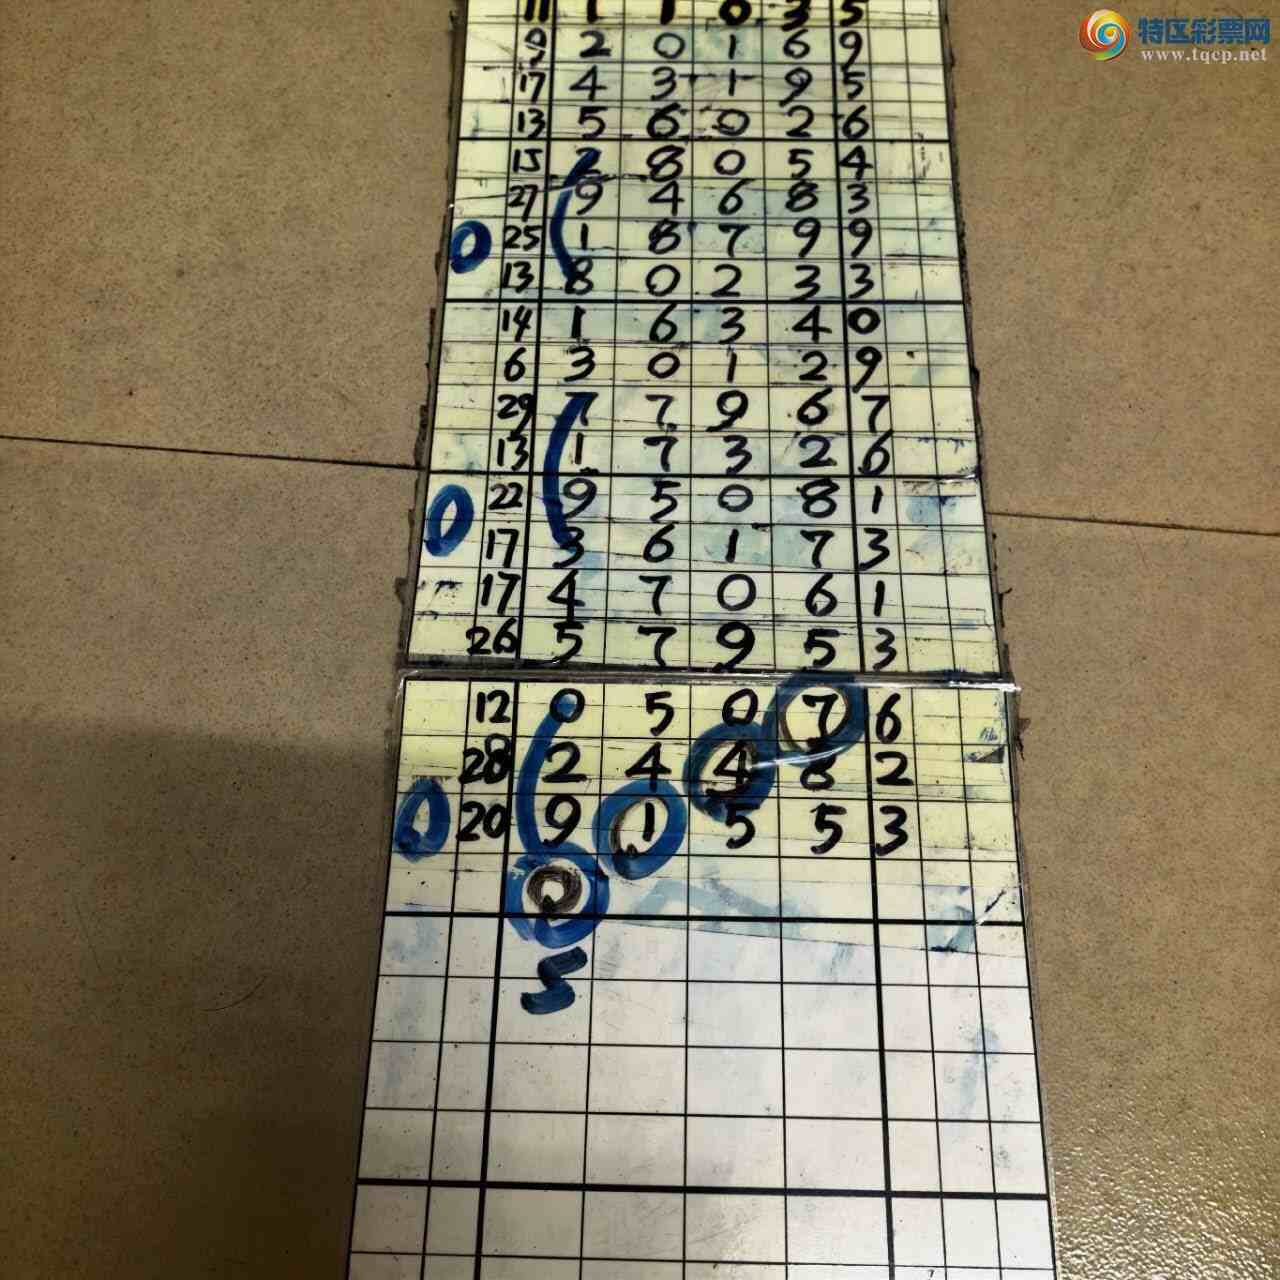 特区彩票网
www.tqcp.net
11 1 1 0 3 5
9 2 0 1 6 9
17 4 3 1 9 5
13 5 6 0 2 6
15 2 8 0 5 4
27 9 4 6 8 3
0 25 1 8 7 9 9
13 8 0 2 3 3
14 1 6 3 4 0
6 3 0 1 2 9
29 7 7 9 6 7
13 1 7 3 2 6
0 22 9 5 0 8 1
17 3 6 1 7 3
17 4 7 0 6 1
26 5 7 9 5 3
12 0 5 0 7 6
28 2 4 4 8 2
0 20 9 1 5 5 3
0
5